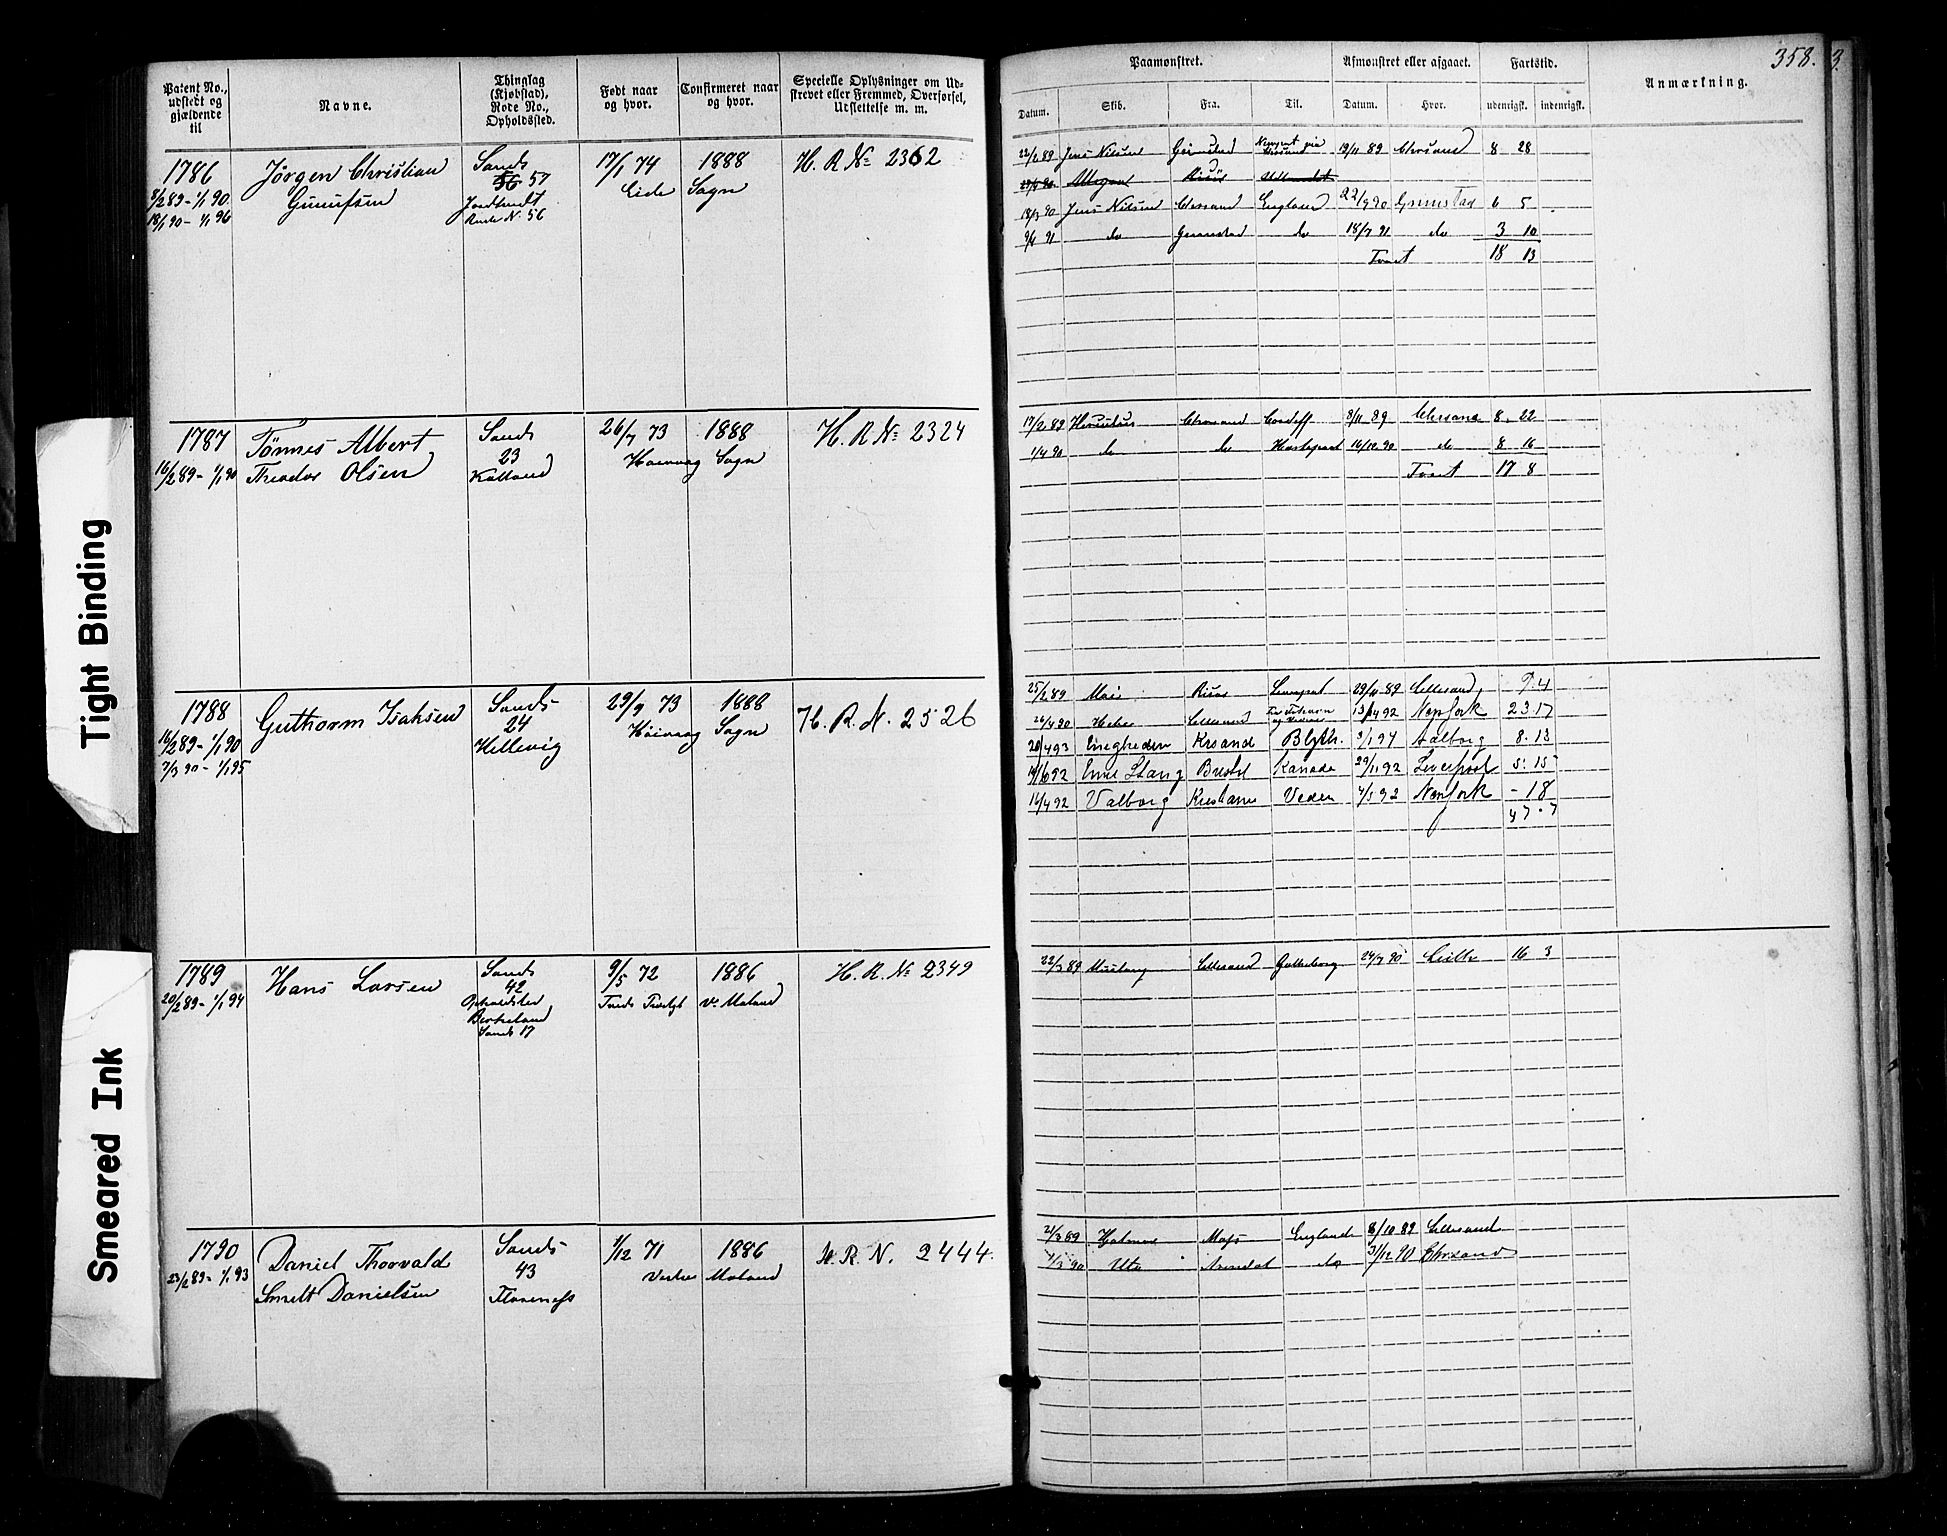 Patent No., udstedt og gjældende til
Navne.
Thinglag (Kjøbstad), Rode No., Opholdssted.
Født naar og hvor.
Confirmeret naar og hvor.
Specielle Oplysninger om Udskrevet eller Fremmed, Overførsel, Udslettelse m. m.
Paamønstret.
Afmønstret eller afgaaet.
Fartstid.
Anmærkning.
358.
3.
Datum. Skib. Fra. Til. Datum. Hvor. udenrigsk. indenrigsk.
1786
8/2 89 - 1/1 90
18/1 90 - 1/1 96
Jørgen Christian
Gunufsen
Sands
56 57
Rode N. 56
17/1 74
Eide
1888
Sogn
H. R No 2362
22/2 89 Jens Nilsen Grimstad 19/11 89 Chrsand 8 28
Risør
18/3 90 Jens Nilsen Chrsand England 22/9 90 Grimstad 6 5
9/4 91 do Grimstad do 18/7 91 do 3 10
Tvaet 18 13
1787
16/2 89 - 1/1 90
Tønnes Albert
Theodor Olsen
Sands
23
Kalland
26/7 73
Høivaag
1888
Sogn
H. R No 2324
17/2 89 Chrsand Cardeff 8/11 89 Chrsand 8 22
1/4 90 do do 16/12 90 do 8 16
Tvaet 17 8
1788
16/2 89 - 1/1 90
7/3 90 - 1/1 95
Guthorm Isaksen
Sands
24
Hellevig
29/9 73
Høivaag
1888
Sogn
H. R. N. 2526
25/2 89 Risør 29/11 89 Lillesand 9. 4
26/4 90 Hebe Lillesand 13/4 92 Newjork 23 17
20/4 93 Krsand Blyth. 3/1 94 Aalborg 8. 13
14/6 92 Emil Stang Kanada 29/11 92 Liverpool 5. 15
16/4 92 Valborg 4/5 92 Newjork - 18
47. 7
1789
20/2 89 - 1/1 94
Hans Larsen
Sands
42
Opholdsted
Birkeland
Sands 17
9/5 72
1886
V. Moland
H. R. No 2349
22/3 89 Mustang Lillesand Gøtheborg 24/7 90 Leith 16 3
1790
23/2 89 - 1/1 93
Daniel Thorvald
Smelt Danielsen
Sands
43
1/12 71
Vestre
1886
Moland
H. R. N. 2444.
2/3 89 England 8/10 89 Lillesand
7/3 90 Ute Arendal do 31/12 90 Chrsand
Tight Binding
Smeared Ink